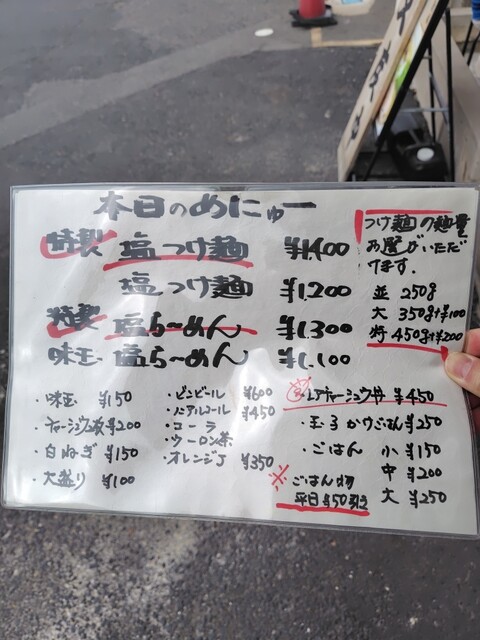 本日のめにゅー
特製 塩つけ麺 ¥1,400
塩つけ麺 ¥1,200
特製 塩らーめん ¥1,300
味玉 塩らーめん ¥1,100
つけ麺の麺量
お選びいただ
けます.
並 250g
大 350g+¥100
特 450g+¥200
・味玉 ¥150
・チャーシュー2枚 ¥200
・白ねぎ ¥150
・大盛り ¥100
・ビンビール ¥600
・ノンアルコール ¥450
・コーラ
・ウーロン茶
・オレンジJ ¥350
レアチャーシュウ丼 ¥450
・玉子かけごはん ¥250
・ごはん 小 ¥150
中 ¥200
大 ¥250
※ごはん物
平日¥50引き